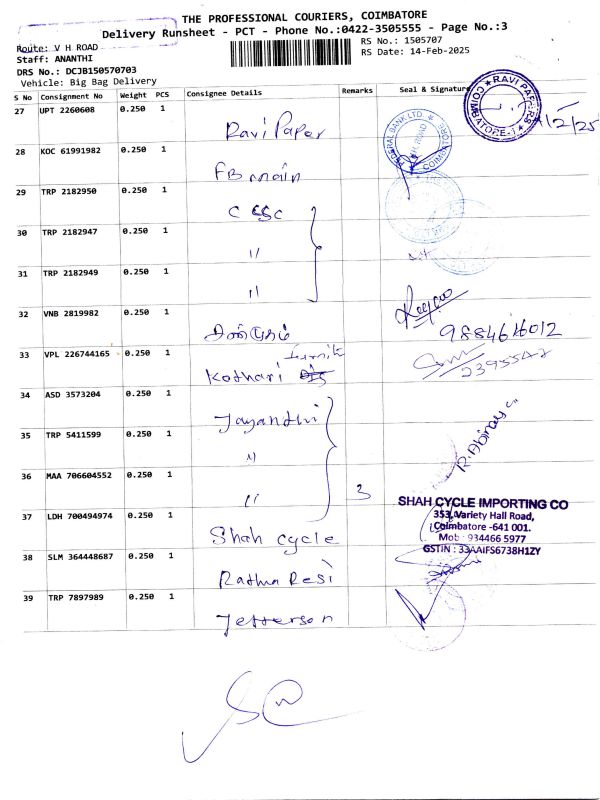 THE PROFESSIONAL COURIERS, COIMBATORE
Delivery Runsheet - PCT - Phone No.:0422-3505555 - Page No.:3
Route: V H ROAD
RS No.: 1505707
Staff: ANANTHI
RS Date: 14-Feb-2025
DRS No.: DCJB150570703
Vehicle: Big Bag Delivery
S No Consignment No Weight PCS Consignee Details Remarks Seal & Signature
27 UPT 2260608 0.250 1 Ravi Paper
RAVI PAPERS COIMBATORE-1
/2/25
28 KOC 61991982 0.250 1 FB main
FEDERAL BANK LTD. COIMBATORE
29 TRP 2182950 0.250 1
30 TRP 2182947 0.250 1 "
31 TRP 2182949 0.250 1 "
32 VNB 2819982 0.250 1
9884616012
33 VPL 226744165 0.250 1 Kothari
2395542
34 ASD 3573204 0.250 1 Jayanthi
35 TRP 5411599 0.250 1 "
R. Abinaya
36 MAA 706604552 0.250 1 " 3
37 LDH 700494974 0.250 1 Shah cycle
SHAH CYCLE IMPORTING CO
353, Variety Hall Road,
Coimbatore -641 001.
Mob : 934466 5977
GSTIN : 33AAIFS6738H1ZY
38 SLM 364448687 0.250 1 Rathna Resi
39 TRP 7897989 0.250 1 Jefferson